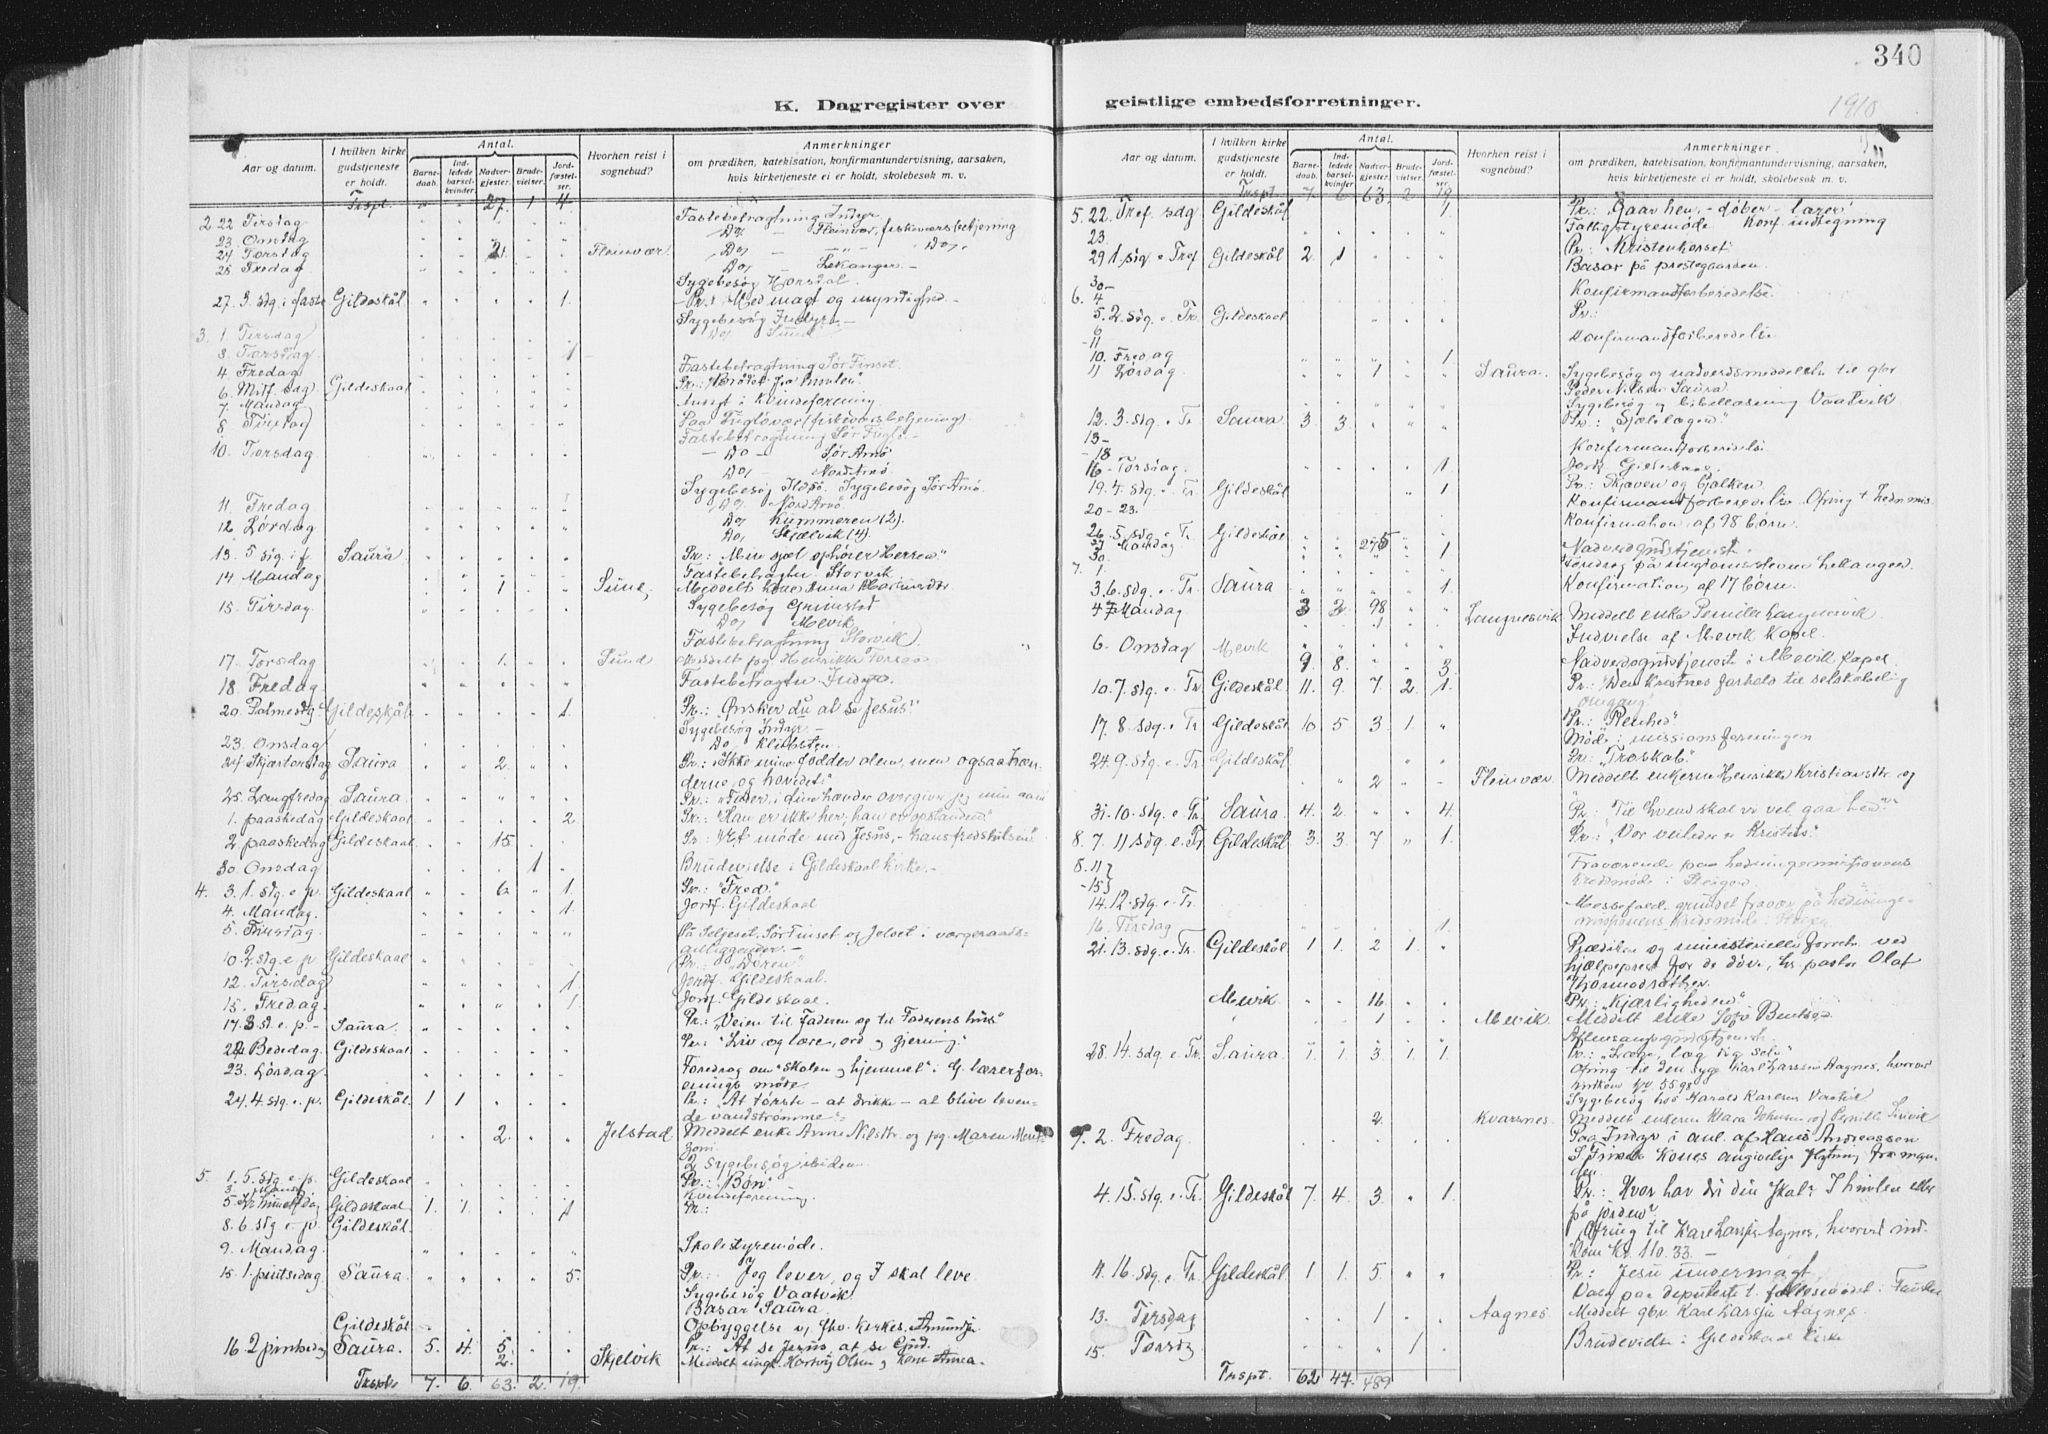 340
K. Dagregister over geistlige embedsforretninger.
1910
Aar og datum. I hvilken kirke gudstjeneste er holdt. Antal. Barnedaab. Indledede barselkvinder. Nadvergjester. Brudevielser. Jordfæstelser. Hvorhen reist i sognebud? Anmerkninger om prædiken, katekisation, konfirmantundervisning, aarsaken, hvis kirketjeneste ei er holdt, skolebesøk m. v.
Trspt. " " 27. 1 4.
2. 22 Tirsdag Fastebetragtning Indyr
23. Onsdag Do - Fleinvær, fiskeværsbetjening
24 Torsdag 21. Fleinvær. Do - " - Do,
25 Fredag Do - Lekanger. -
Sygebesøg Horsdal.
27. 3. sdg. i faste Gildeskål 1. Pr.: Med magt og myndighed -
Sygebesøg Indyr -
3. 1 Tirsdag Do, Sund
3. Torsdag 1
4 Fredag Fastebetragtning Sør Finset.
6. Mitf. sdg. Gildeskaal Pr.: "Brødet fra himlen"
7. Mandag Andagt i Kvindeforening
8 Tirsdag Paa Fuglevær (fiskeværsbetjening)
Fastebetragtning Sør Fugle -
10. Torsdag - Do - Sør Arnø
Do, - Nord Arnø.
Sygebesøg Sør Arnø.
11. Fredag Do, Nord Arnø
12 Lørdag Do, Kummeren (2).
Do, Skjælvik (4).
13. 5 sdg. i f. Saura Pr.: "Min sjæl ophøier Herren"
14 Mandag Fastebetragtn. Storvik.
1 Sund,
15. Tirsdag Sygebesøg Grimstad
Do, Mevik
Fastebetragtning Storvik).
17. Torsdag 1. Sund
18. Fredag Fastebetragtn. Indyr.
20. Palmesdg. Gildeskål 1. Pr.: "Ønsker du at se Jesus"
Sygebesøg Indyr -
23. Onsdag Do,
24 Skjærtorsdag Saura 2. Pr.: "Ikke mine fødder alene, men ogsaa hænderne og hovedet"
25. Langfredag Saura. Pr.: "Fader, i dine hænder overgiver jeg min aand
1. paaskedag Gildeskaal 2. Pr.: "Han er ikke her, han er opstanden"
2 paaskedag Gildeskaal. 15. Pr.: "Et møde med Jesus, -
30. Onsdag 1 Brudevielse i Gildeskaal kirke. -
4. 3. 1. sdg. e. p. Gildeskaal 6 1. Pr.: "Fred."
4. Mandag. 1. Jordf. Gildeskaal
5. Tirsdag.
10. 2 sdg. e. p. Gildeskaal Pr.: "Døren"
12. Tirsdag 1 Jordf. Gildeskaal.
15. Fredag. 1 Jordf. Gildeskaal.
17. 3 sd. e. p. - Saura. Pr.: "Veien til Faderen og til Faderens hus"
22. Bededag. Gildeskaal Pr.: "Liv og lære, ord og gjerning."
23. Lørdag. Foredrag om "skolen og hjemmet" i G. lærerforenings møde.
24. 4. sdg. e. p. Gildeskål. 1 1. Pr.: "At tørste - at drikke - at blive levende vandstrømme".
2. Jelstad Meddelt enke Anne Nilsdtr. og pg. Maren
2 Sygebesøg ibidem.
5. 1. 5. sdg. e. p. Gildeskaal Pr.: "Bøn"
Kvindeforening.
5. Kr. himmelfdag Gildeskaal 1. 1. 1 Pr.:
8. 6. sdg. e. p. Gildeskål.
9. Mandag. Skolestyremøde.
15. 1. pintsedag Saura. 5. Pr.: Jeg lever, og I skal leve.
Sygebesøg Vaatvik.
Basar Saura.
Gildeskål. Opbyggelse v,
16. 2 pintsedag Saura. 5. 4. 5. Pr.: At se Jesus, at se Gud.
2. Skjelvik Meddelt Olsen og kone Anna.
Trspt. 7. 6. 63. 2. 19.
Aar og datum. I hvilken kirke gudstjeneste er holdt. Antal. Barnedaab. Indledede barselkvinder. Nadvergjester. Brudevielser. Jordfæstelser. Hvorhen reist i sognebud? Anmerkninger om prædiken, katekisation, konfirmantundervisning, aarsaken, hvis kirketjeneste ei er holdt, skolebesøk m. v.
Trspt. 7 6 63. 2 19.
5. 22. Tref. sdg Gildeskål 1. Pr.: Gaar hen - døber - lærer
23. Fattigstyremøde Konf. indtegning
29 1. sdg. e. Tref Gildeskål 2. 1 Pr.: Kristenkorset
Basar på prestegaarden.
30 - Konfirmandforberedelse.
6. 4
5. 2. sdg. e. Tr. Gildeskaal Pr.:
6
-11 Konfirmandforberedelse
10. Fredag 1
11 Lørdag 1 Saura. Sygebesøg og nadverdsmeddelelse til gbr
Peder Nilsen Saura.
Sygebesøg og bibellæsning Vaatvik
12. 3. sdg. e. Tr. Saura 3 3. Pr.: "Sjælelægen"
13 -
-18 Konfirmandforberedelse
16 - Torsdag. 1. Jordf. Gildeskaal.
19. 4. sdg. e. Tr. Gildeskål 1 Pr.: Skjæven og Bjælken.
20 - 23. Konfirmandforberedelse. Ofring t. hedn. mis.
Konfirmation af 98 børn.
26. 5. sdg. e. Tr. Gildeskål
27 Mandag 275 1 Nadverdgudstjeneste.
30. Foredrag på ungdomsstevne Lekanger.
7. 1.
3. 6. sdg. e. Tr. Saura 1. Konfirmation af 17 børn.
4 Mandag 3 2. 98 Langnesvik Meddelt enke Pernille Langnesvik
6. Onsdag Mevik Indvielse af Mevik Kapel.
9 8. 3. Nadverdgudstjeneste i Mevik Kapel.
10. 7. sdg. e. Tr. Gildeskål 11. 9. 7 2. 1. Pr.: Den kristnes forhold til selskabelig omgang.
17. 8. sdg. e. Tr. Gildeskål 10 5 3 1. Pr.: "Renhed"
Møde i missionsforeningen
24. 9. sdg. e. Tr. Gildeskål Pr.: "Troskab."
2 Fleinvær Meddelt enkerne Henrikke Kristiansdtr. og
31. 10. sdg. e. Tr. Saura 4. 2. 4. Pr.: "Til hvem skal vi vel gaa hen?"
8. 7. 11 sdg. e. Tr. Gildeskål 3. 3. 7 " 1. Pr.: "Vor veileder er Kristus."
8. 11}
-15} Fraværende paa hedningemissionens
Kredsmøde i Steigen.
14. 12. sdg. e. Tr. Messefald grundet fravær på hedningemissionens kredsmøde i Steigen
16. Tirsdag 1.
21. 13. sdg. e. Tr. Gildeskål 1 1. 2 1. Prædiken og ministerielle forretn. ved
hjælpeprest for de døve, hr. pastor Olaf
Thormodsæther.
Mevik 16 Pr.: "Kjærligheden".
1 Mevik. Meddelt enke
Aftensangsgudstjeneste.
28. 14. sdg. e. Tr. Saura 1. 1. 3. 1. 1. Pr.: "Læge, læg dig selv"
Ofring til den syge Karl Larsen Aagnes, hvorved
indkom kr. 55 98
Sygebesøg hos Harald Karlsen Vaatvik
2. Kvarsnes. Meddelt enkerne Klara Johnsen og Pernille
9. 2. Fredag. Paa Indyr i anl. af Hans Andreassen
S. Finset Kones angivelige flytning fra manden.
4. 15. sdg. e. Tr. Gildeskål 7 4. 3. 1. Pr.: Hvor har du din skat? I himlen eller
på jorden"
Ofring til Karl Larsen Aagnes, hvorved indkom Kr. 110. 33. -
11. 16. sdg. e. Tr. Gildeskål 1 1. 5. Pr.: Jesu undermagt.
13. Tirsdag 1 Aagnes. Meddelt gbr. Karl Larsen Aagnes.
15. Torsdag 1 Brudevielse i Gildeskaal Kirke
Trspt. 62 47. 489